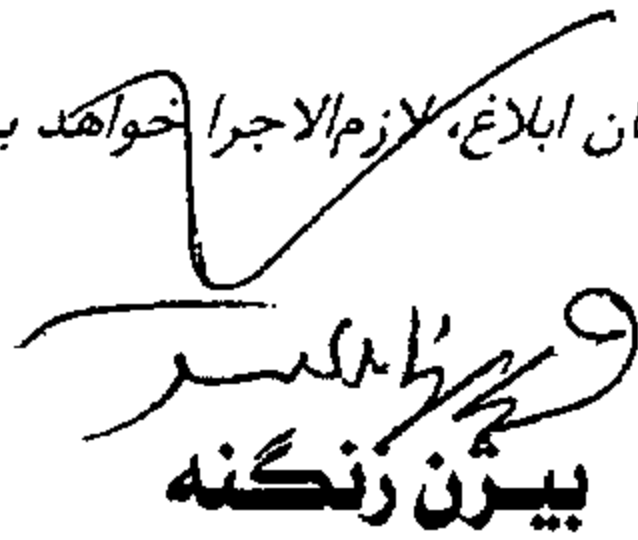 ان ابلاغ، لازم‌الاجرا خواهد ب
بیژن زنگنه